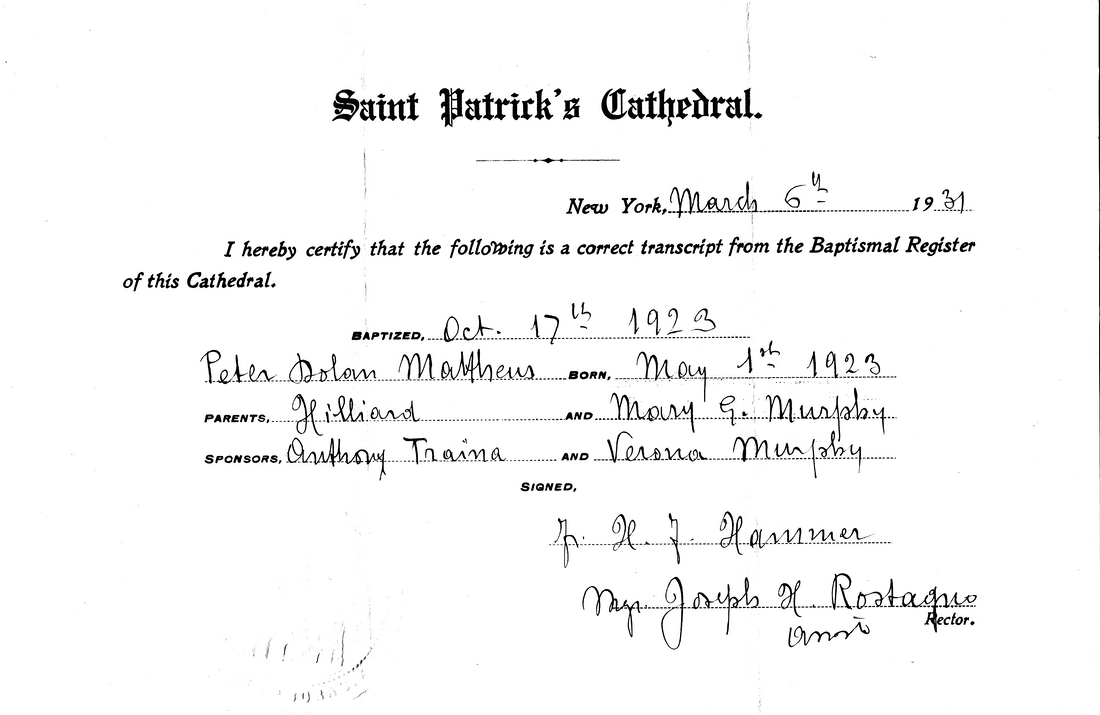 Saint Patrick's Cathedral.
New York, March 6th 1931
I hereby certify that the following is a correct transcript from the Baptismal Register
of this Cathedral.
BAPTIZED, Oct. 17th 1923
Peter Dolan Mattheus BORN, May 1st 1923
PARENTS, Hilliard AND Mary G. Murphy
SPONSORS, Anthony Traina AND Verona Murphy
SIGNED,
H. J. Hammer
Mgr. Joseph H. Rostagno
Rector.